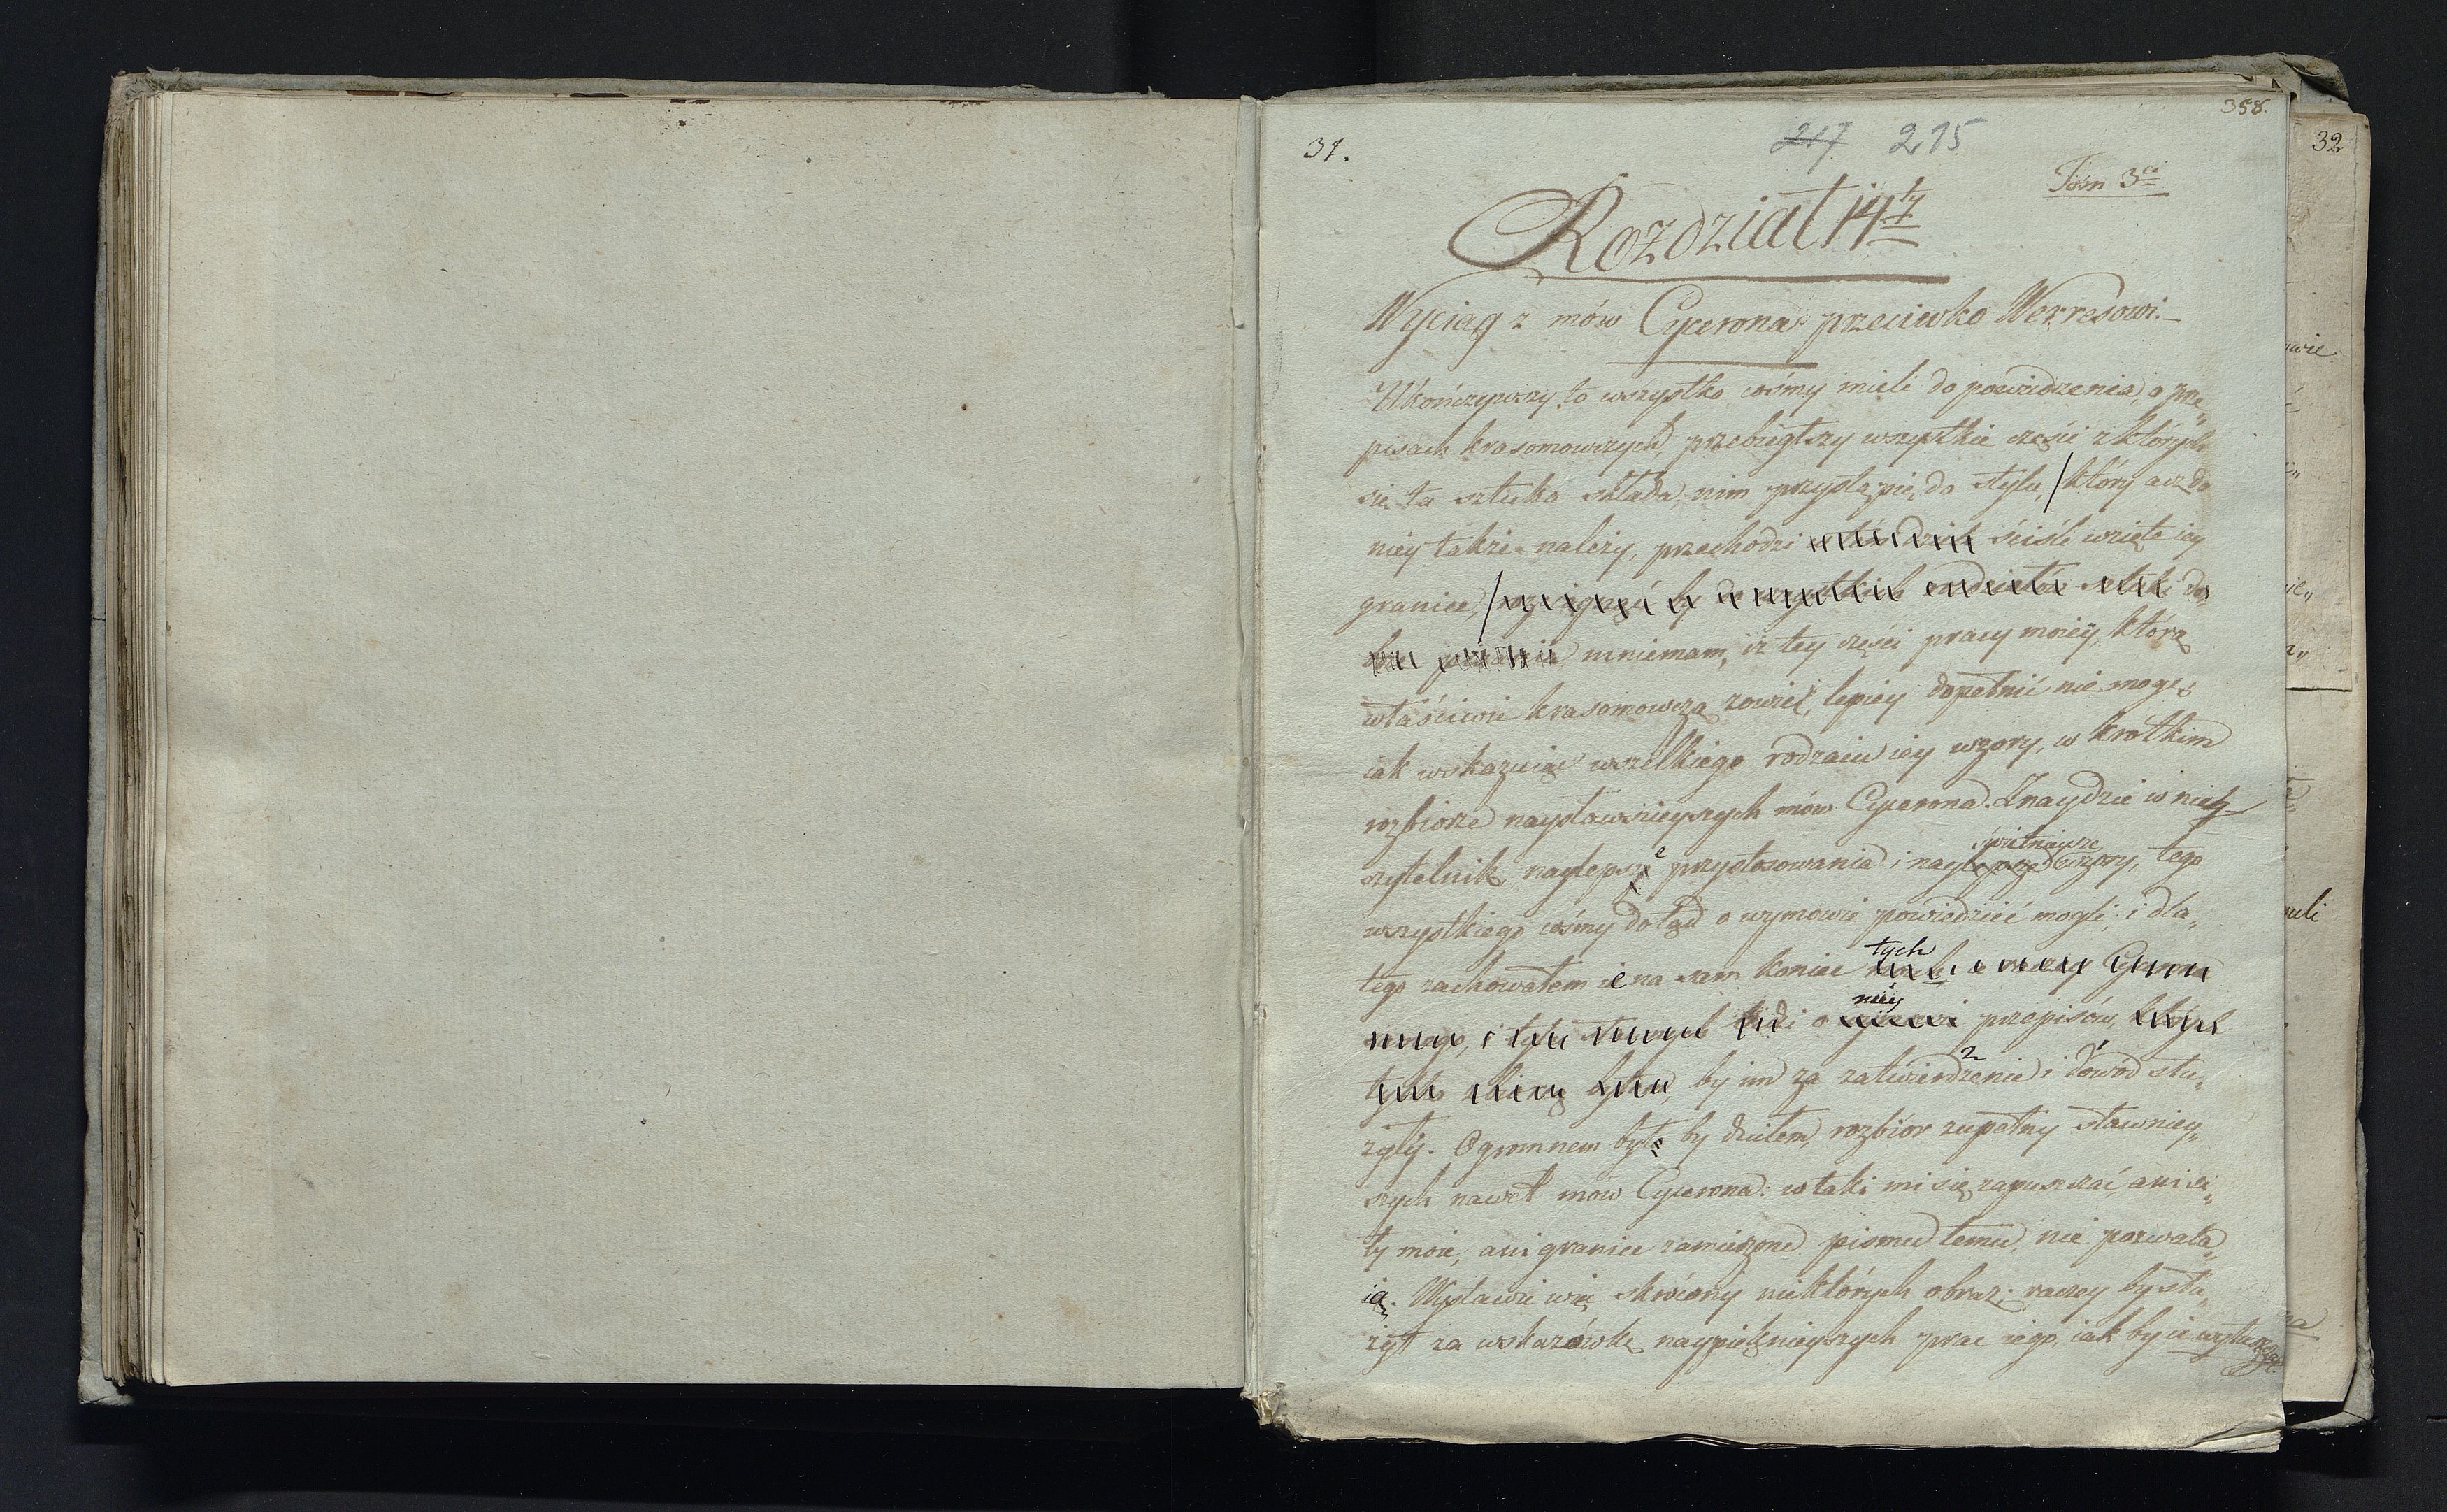 358.
31.
217 215
32
Tom 3ci
Rozdział 14ty
Wyciąg z mów Cycerona przeciwko Werresowi.
Ukończywszy to wszystko cośmy mieli do powiedzenia, o prze„
pisach krasomowczych, przebiegłszy wszystkie części z których
się ta sztuka składa, nim przystąpię, do stylu, który acz do
niey także należy, przechodzi ściśle wzięte iey
granice, do„
mniemam, iż tey części pracy moiéy, którą
właściwie krasomowczą zowię, lepiey dopełnić nie mogę,
iak wskazuiąc wszelkiego rodzaiu iey wzory, w krótkim
rozbiorze naysławnieyszych mów Cycerona. Znaydzie w nich
czytelnik naylepsze przystosowania i nayświetniejsze wzory, tego
wszystkiego cośmy dotąd o wymowie powiedzieć mogli; i dla„
tego zachowałem ie na sam koniec tych
o niéy przepisów,
by im za zatwierdzenie 2 i dowód 1 słu„
żyły. Ogromnem było by dziełem, rozbiór zupełny sławniey„
szych nawet mów Cycerona: w taki mi się zapuszczać, ani si„
ły moie, ani granice zamierzone pismu temu, nie pozwala„
ią. Wystawię więc skrócony niektórych obraz; raczey by słu„
żył za wskazówkę naypięknieyszych prac iego, iak by ie wytłuszczał.